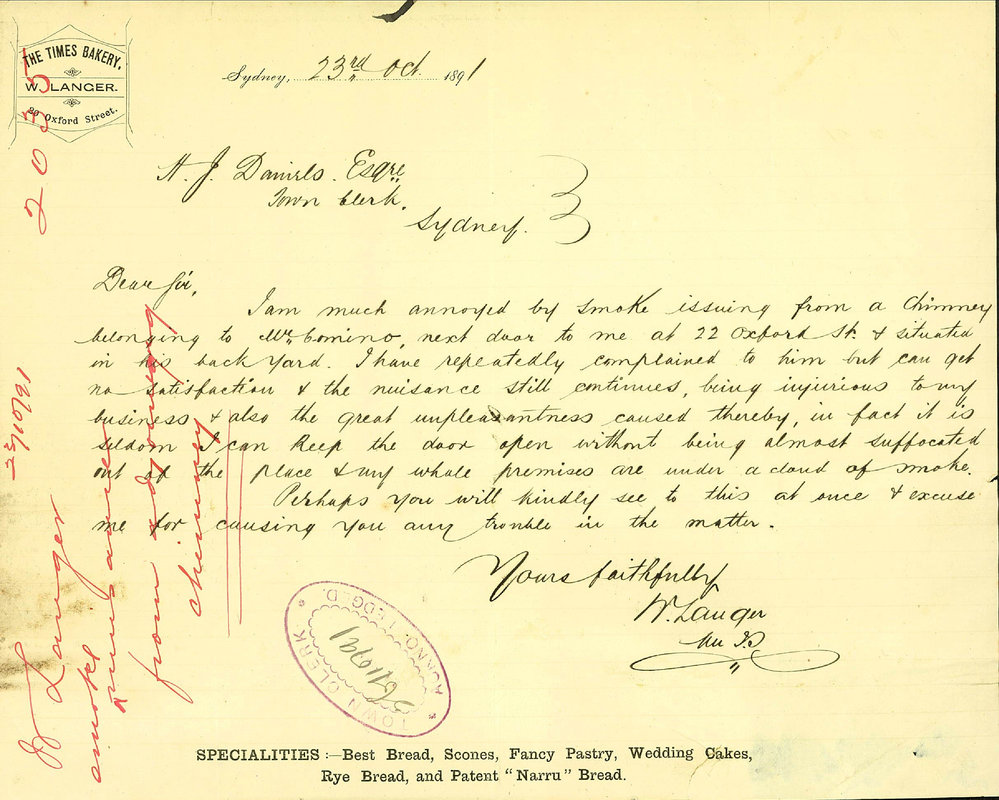 THE TIMES BAKERY.
W. LANGER.
20 Oxford Street.
Sydney, 23rd Oct. 1891
H. J. Daniels. Esqre
Town Clerk.
Sydney.
Dear Sir,
I am much annoyed by smoke issuing from a Chimney
belonging to Mr. Comino, next door to me at 22 Oxford St. & situated
in his back yard. I have repeatedly complained to him but can get
no satisfaction & the nuisance still continues, being injurious to my
business & also the great unpleasantness caused thereby, in fact it is
seldom I can keep the door open without being almost suffocated
out of the place & my whole premises are under a cloud of smoke.
Perhaps you will kindly see to this at once & excuse
me for causing you any trouble in the matter.
Yours faithfully
W. Langer
2035
23/10/91
W Langer
smoke nuisance
from adjoining
chimney
TOWN CLERK
ACKNOWLEDGED.
26/10/91
SPECIALITIES :—Best Bread, Scones, Fancy Pastry, Wedding Cakes,
Rye Bread, and Patent "Narru" Bread.